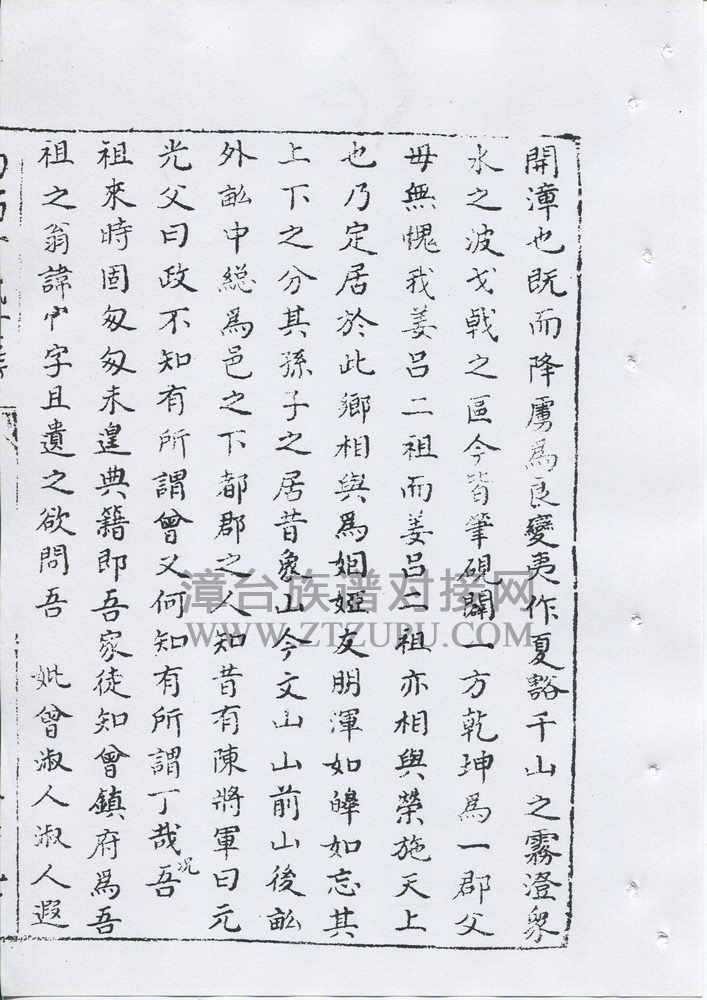 開漳也既而降虜為良變夷作夏豁千山之霧澄衆
水之波戈戟之區今皆筆硯闢一方乾坤為一郡父
毋無愧我姜吕二祖而姜吕二祖亦相與榮施天上
也乃定居於此鄉相與為姻婭友朋渾如皞如忘其
上下之分其孫子之居昔象山今文山山前山後畆
外畆中緫為邑之下都郡之人知昔有陳將軍曰元
光父曰政不知有所謂曾又何知有所謂丁哉況吾
祖來時固匆匆未遑典籍即吾家徒知曾鎮府為吾
祖之翁諱 字且遺之欲問吾 妣曾淑人淑人遐
漳台族谱对接网
WWW.ZTZUPU.COM